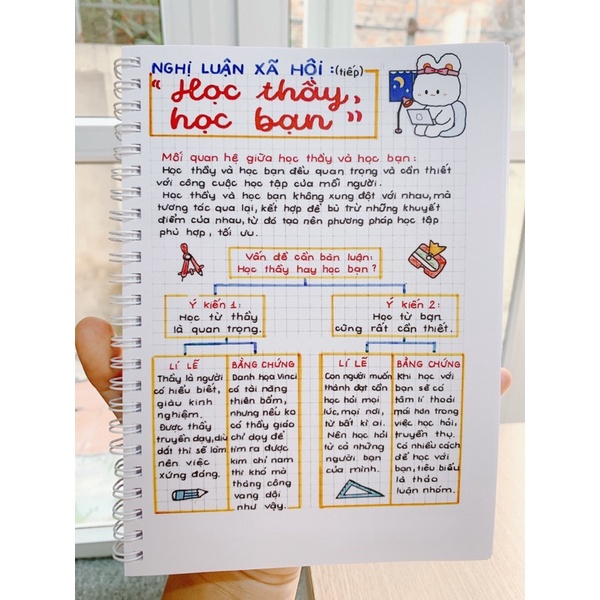 NGHỊ LUẬN XÃ HỘI :(tiếp)
“Học thầy,
học bạn”
Mối quan hệ giữa học thầy và học bạn:
Học thầy và học bạn đều quan trọng và cần thiết
với công cuộc học tập của mỗi người.
Học thầy và học bạn không xung đột với nhau, mà
tương tác qua lại, kết hợp để bù trừ những khuyết
điểm của nhau, từ đó tạo nên phương pháp học tập
phù hợp, tối ưu.
Vấn đề cần bàn luận:
Học thầy hay học bạn?
Ý kiến 1:
Học từ thầy
là quan trọng.
Ý kiến 2:
Học từ bạn
cũng rất cần thiết.
LÍ LẼ
Thầy là người
có hiểu biết,
giàu kinh
nghiệm.
Được thầy
truyền dạy, dìu
dắt thì sẽ làm
nên việc
xứng đáng.
BẰNG CHỨNG
Danh họa Vinci
có tài năng
thiên bẩm,
nhưng nếu ko
có thầy giáo
chỉ dạy để
tìm ra được
kim chỉ nam
thì khó mà
thàng công
vang dội
như vậy.
LÍ LẼ
Con người muốn
thành đạt cần
học hỏi mọi
lúc, mọi nơi,
từ bất kì ai.
Nên học hỏi
từ cả những
người bạn
của mình.
BẰNG CHỨNG
Khi học với
bạn sẽ có
tâm lí thoải
mái hơn trong
việc học hỏi,
truyền thụ.
Có nhiều cách
để học với
bạn, tiêu biểu
là thảo
luận nhóm.